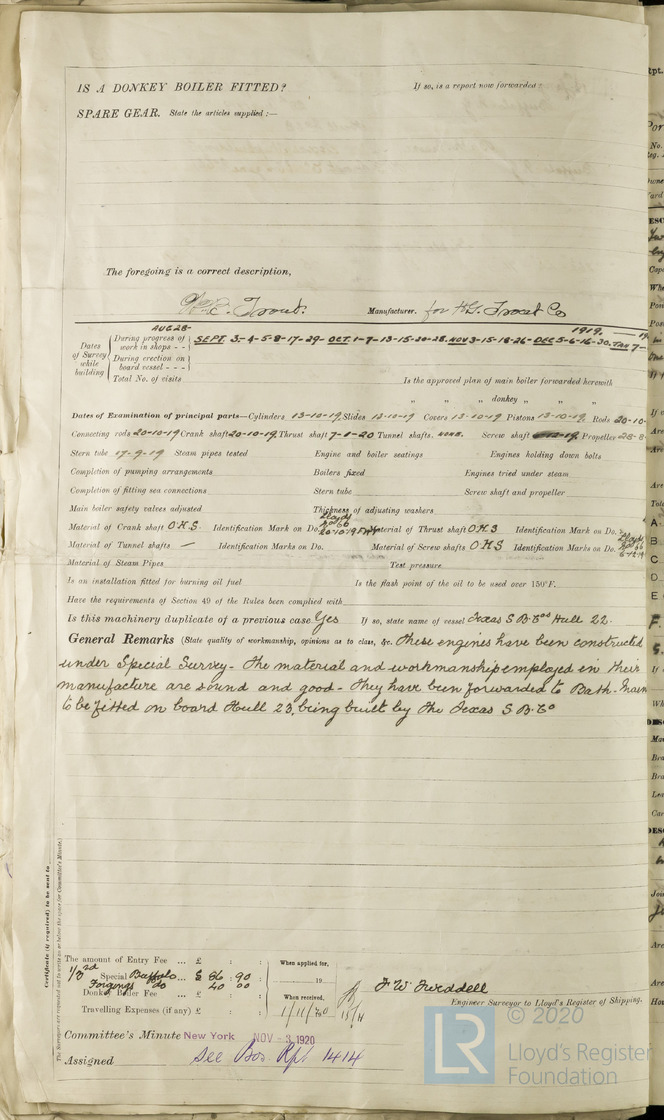 IS A DONKEY BOILER FITTED? If so, is a report now forwarded?
SPARE GEAR. State the articles supplied:—
The foregoing is a correct description,
Wm C. Trout. Manufacturer. for H.G. Trout Co
AUG 28- 1919. 19
Dates of Survey while building
During progress of work in shops - - SEPT. 3-4-5-8-17-29- OCT. 1-7-13-15-20-28. NOV 3-15-18-26- DEC 5-6-16-30. JAN 7-
During erection on board vessel - - -
Total No. of visits
Is the approved plan of main boiler forwarded herewith
" " donkey " " "
Dates of Examination of principal parts—Cylinders 13-10-19 Slides 13-10-19 Covers 13-10-19 Pistons 13-10-19 Rods 20-10-
Connecting rods 20-10-19 Crank shaft 20-10-19 Thrust shaft 7-1-20 Tunnel shafts. NONE. Screw shaft Propeller 28-8-
Stern tube 17-9-19 Steam pipes tested Engine and boiler seatings Engines holding down bolts
Completion of pumping arrangements Boilers fixed Engines tried under steam
Completion of fitting sea connections Stern tube Screw shaft and propeller
Main boiler safety valves adjusted Thickness of adjusting washers
Material of Crank shaft O.H.S Identification Mark on Do. Lloyds No 66 20-10-19 Material of Thrust shaft O.H.S Identification Mark on Do.
Material of Tunnel shafts — Identification Marks on Do. Material of Screw shafts O.H.S Identification Marks on Do. Lloyds No 66
Material of Steam Pipes Test pressure
Is an installation fitted for burning oil fuel Is the flash point of the oil to be used over 150°F.
Have the requirements of Section 49 of the Rules been complied with
Is this machinery duplicate of a previous case Yes If so, state name of vessel Texas S B. Cos Hull 22.
General Remarks (State quality of workmanship, opinions as to class, &c. These engines have been constructed
under Special Survey - The material and workmanship employed in their
manufacture are sound and good - They have been forwarded to Bath - Main
to be fitted on board Hull 23, being built by the Texas S B. Co
Certificate (if required) to be sent to
The amount of Entry Fee ... £ : : When applied for,
1/3rd Special Buffalo $ 86 . 90 : 19
Forgings do 40 00
Donkey Boiler Fee ... £ : : When received,
Travelling Expenses (if any) £ : : 1/11/20
F W Twiddell
Engineer Surveyor to Lloyd's Register of Shipping.
Committee's Minute New York NOV - 3 1920
Assigned See Bos Rpt. 1414
LR © 2020
Lloyd's Register
Foundation